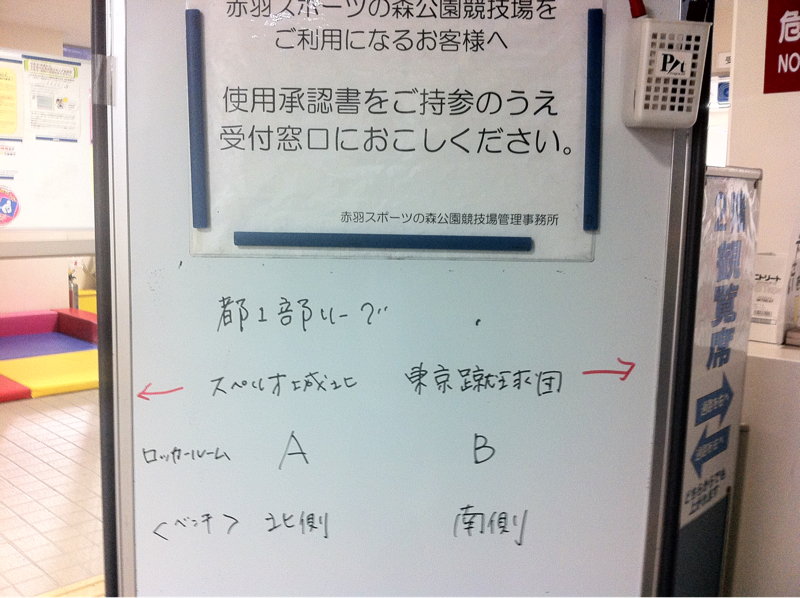 赤羽スポーツの森公園競技場を
ご利用になるお客様へ
使用承認書をご持参のうえ
受付窓口におこしください。
赤羽スポーツの森公園競技場管理事務所
都1部リーグ
スペリオ城北 東京蹴球団
ロッカールーム A B
<ベンチ> 北側 南側
危
NO
観覧席
どちらからでも
上がれます